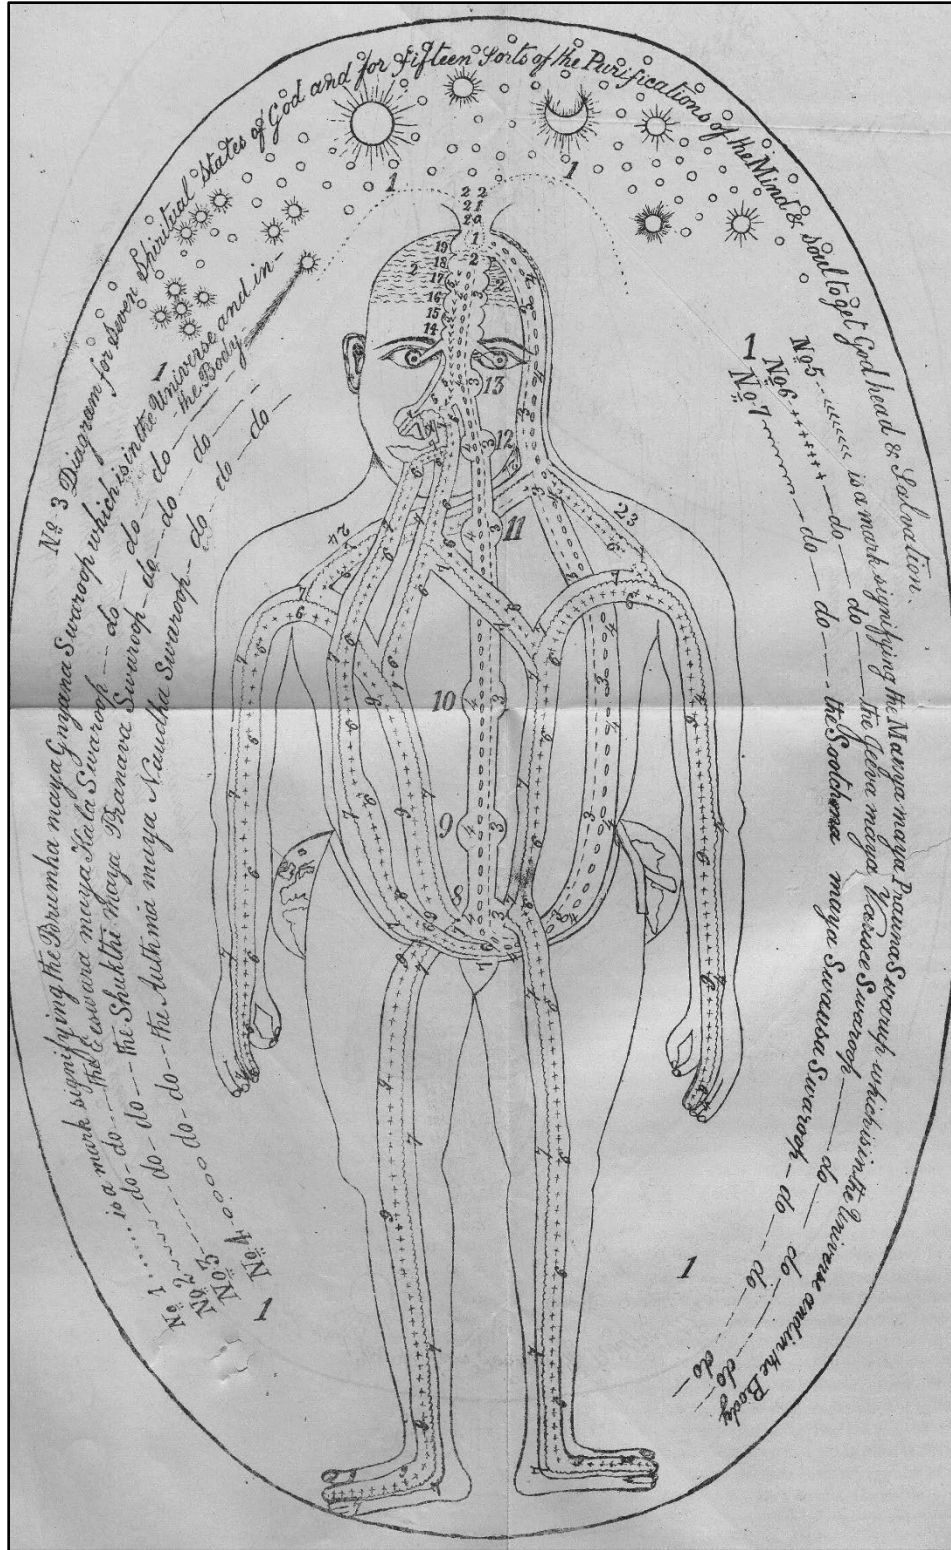 No 3 Diagram for Seven Spiritual States of God and for fifteen Sorts of the Purifications of the Mind & soul to get God head & Salvation.
No 1 ....... is a mark signifying the Brumha maya Gnyana Swaroop which is in the Universe and in-
the Body
No 2 ~~~~ do - do - the Eeswara maya Kala Swaroop - do - do - do
No 3 ------ do - do - the Shukthi Maya Pranava Swaroop - do - do - do
No 4 o.ooo do - do - the Authma maya Naudha Swaroop - do - do - do
No 5 --- <<<<< is a mark signifying the Maya Prauna Swarup which is in the Universe and in the Body
No 6 +++++ do - do - the Jelva maya Vassee Swaroop - do - do - do
No 7 ~~~~ do - do - the Sootchma maya Swausa Swaroop - do - do - do
1
1
1
1
1
1
2 2
2 1
2 0
1
19
18
17
16
15
14
13
12
11
23
24
10
9
8